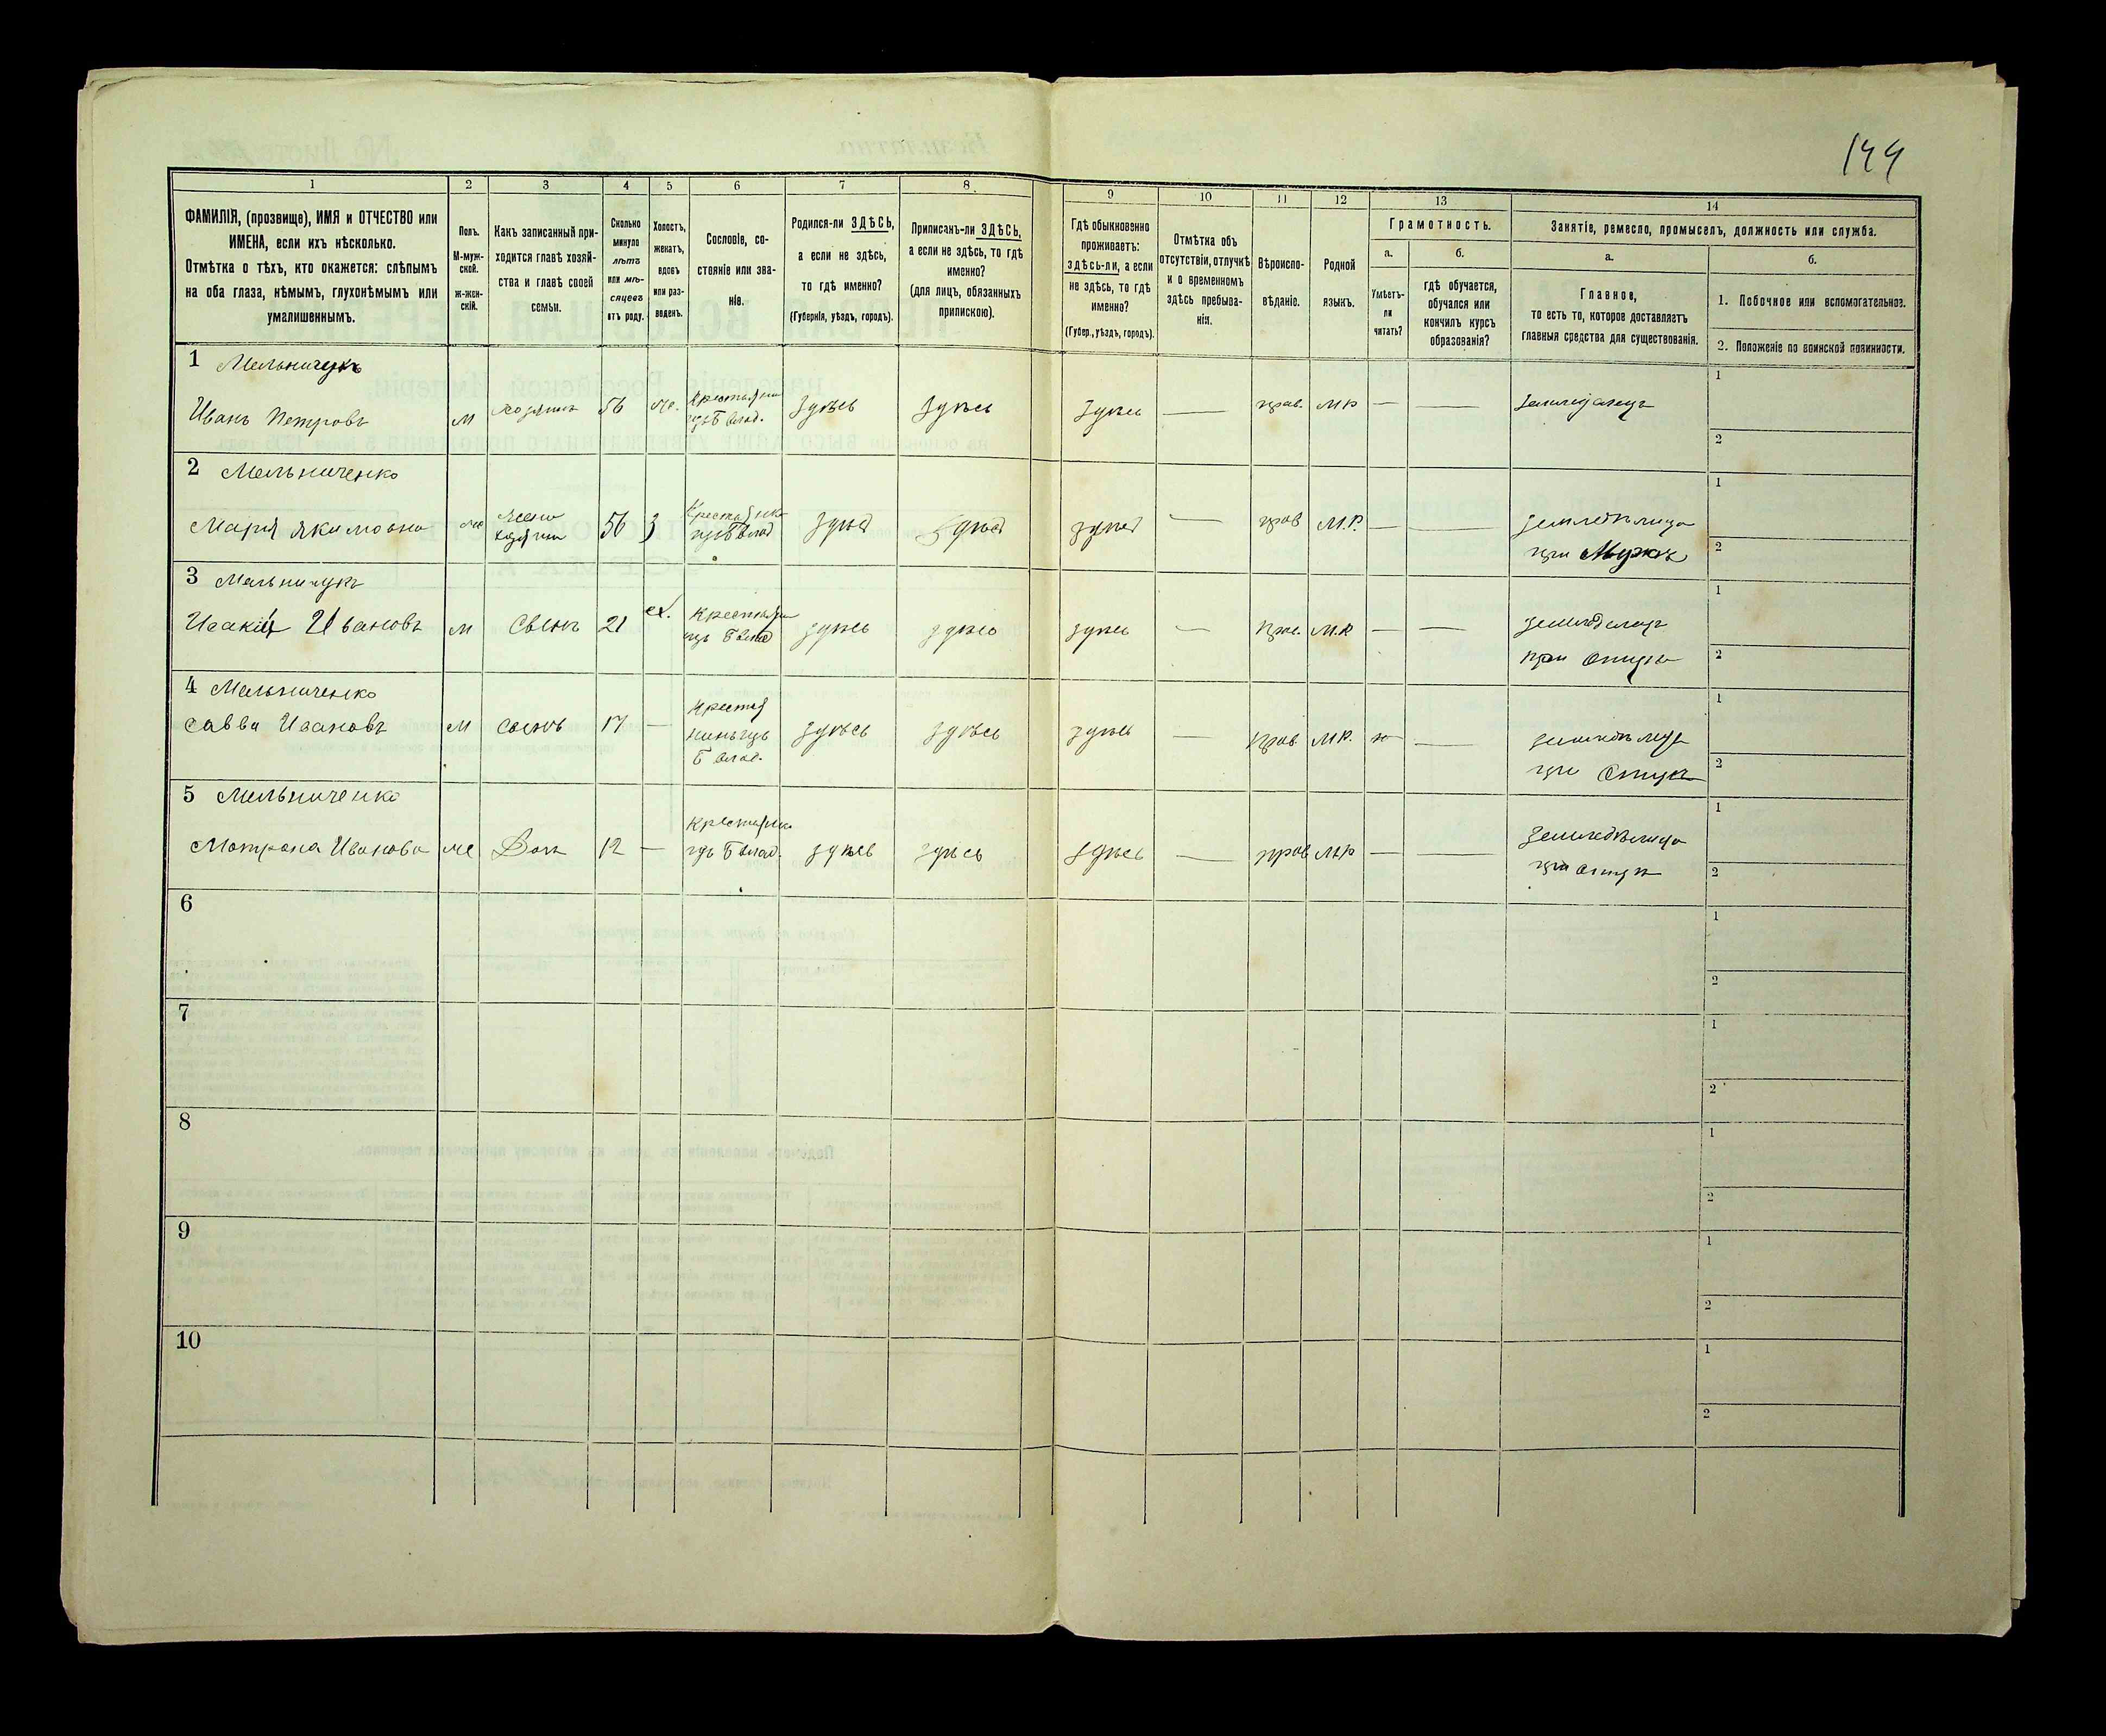 144
1
2
3
4
5
6
7
8
9
10
11
12
13
14
ФАМИЛІЯ, (прозвище), ИМЯ и ОТЧЕСТВО или
ИМЕНА, если ихъ нѣсколько.
Отмѣтка о тѣхъ, кто окажется: слѣпымъ
на оба глаза, нѣмымъ, глухонѣмымъ или
умалишеннымъ.
Полъ.
М-муж-
ской.
ж-жен-
скій.
Какъ записанный при-
ходится главѣ хозяй-
ства и главѣ своей
семьи.
Сколько
минуло
лѣтъ
или мѣ-
сяцевъ
отъ роду.
Холостъ,
женатъ,
вдовъ
или раз-
веденъ.
Сословіе, со-
стояніе или зва-
ніе.
Родился-ли ЗДѢСЬ,
а если не здѣсь,
то гдѣ именно?
(Губернія, уѣздъ, городъ).
Приписанъ-ли ЗДѢСЬ,
а если не здѣсь, то гдѣ
именно?
(для лицъ, обязанныхъ
припискою).
Гдѣ обыкновенно
проживаетъ:
здѣсь-ли, а если
не здѣсь, то гдѣ
именно?
(Губер., уѣздъ, городъ).
Отмѣтка объ
отсутствіи, отлучкѣ
и о временномъ
здѣсь пребыва-
ніи.
Вѣроиспо-
вѣданіе.
Родной
языкъ.
Грамотность.
а.
Умѣетъ-
ли
читать?
б.
гдѣ обучается,
обучался или
кончилъ курсъ
образованія?
Занятіе, ремесло, промыселъ, должность или служба.
а.
Главное,
то есть то, которое доставляетъ
главныя средства для существованія.
б.
1. Побочное или вспомогательное.
2. Положеніе по воинской повинности.
1 Мельничукъ
Иванъ Петровъ
м
хозяинъ
56
же.
Крестьянин
изъ б влад.
Здѣсь
Здѣсь
Здѣсь
—
прав.
М Р
—
—
земледѣлецъ
1
2
2 Мельниченко
Марія Якимовна
же
жена
хозяина
56
З
Крестьянка
изъ б влад
здѣсь
здѣсь
здѣсь
—
прав
М.Р.
—
—
земледѣлица
при Мужѣ
1
2
3 Мельничукъ
Исакій Ивановъ
м
Сынъ
21
х.
Крестьянин
изъ б влад
здѣсь
здѣсь
здѣсь
—
М.Р
—
—
земледѣлецъ
при отцѣ
1
2
4 Мельниченко
Савва Ивановъ
М
Сынъ
17
—
Крестья
нинъ изъ
б влад.
здѣсь
здѣсь
здѣсь
—
прав
М.Р.
—
при отцѣ
1
2
5 Мельниченко
Мотрона Иванова
же
Дочь
12
—
Крестьянка
изъ б влад.
здѣсь
здѣсь
здѣсь
—
прав
М.Р
—
—
земледѣлица
при отцѣ
1
2
6
1
2
7
1
2
8
1
2
9
1
2
10
1
2